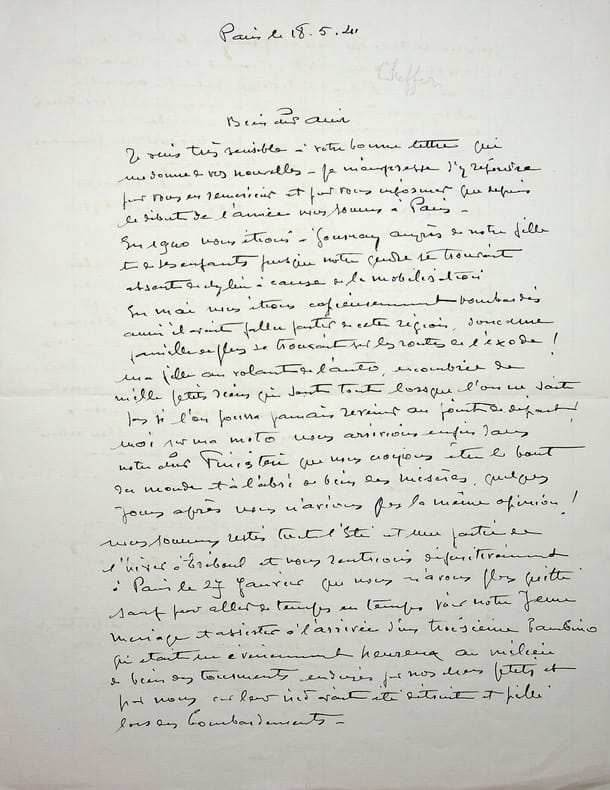 Paris le 18.5.41
Cheffer
Bien cher Ami
Je suis très sensible à votre bonne lettre qui
me donne de vos nouvelles - Je m'empresse d'y répondre
pour vous en remercier et pour vous informer que depuis
le début de l'année nous sommes à Paris -
En 1940 nous étions à Gournay auprès de notre fille
et de ses enfants puisque notre gendre se trouvait
absent de à cause de la mobilisation
En mai nous étions copieusement bombardés
aussi il avait fallu partir de cette région, donc une
famille de plus se trouvait sur les routes de l'exode !
ma fille au volant de l'auto, encombrée de
mille petits riens qui sont tout lorsque l'on ne sait
pas si l'on pourra jamais revenir au point de départ
moi sur ma moto nous arrivions enfin dans
notre cher Finistère que nous croyions être le bout
du monde et à l'abri de bien des misères, quelques
jours après nous n'avions plus la même opinion !
nous sommes restés tout l'Eté et une partie de
l'hiver à Tréboul et nous rentrions définitivement
à Paris le 27 Janvier que nous n'avons plus quitté
sauf pour aller de temps en temps voir notre Jeune
mariage et assister à l'arrivée d'un troisième Bambino
qui était un évènement heureux au milieu
de bien des tourments endurés par nos chers petits et
par nous car leur nid avait été détruit et pillé
lors des bombardements -